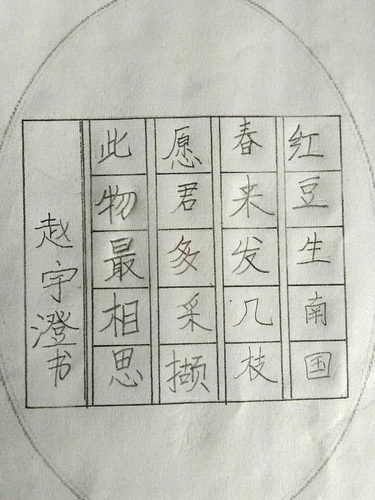 红豆生南国
春来发几枝
愿君多采撷
此物最相思
赵宇澄书